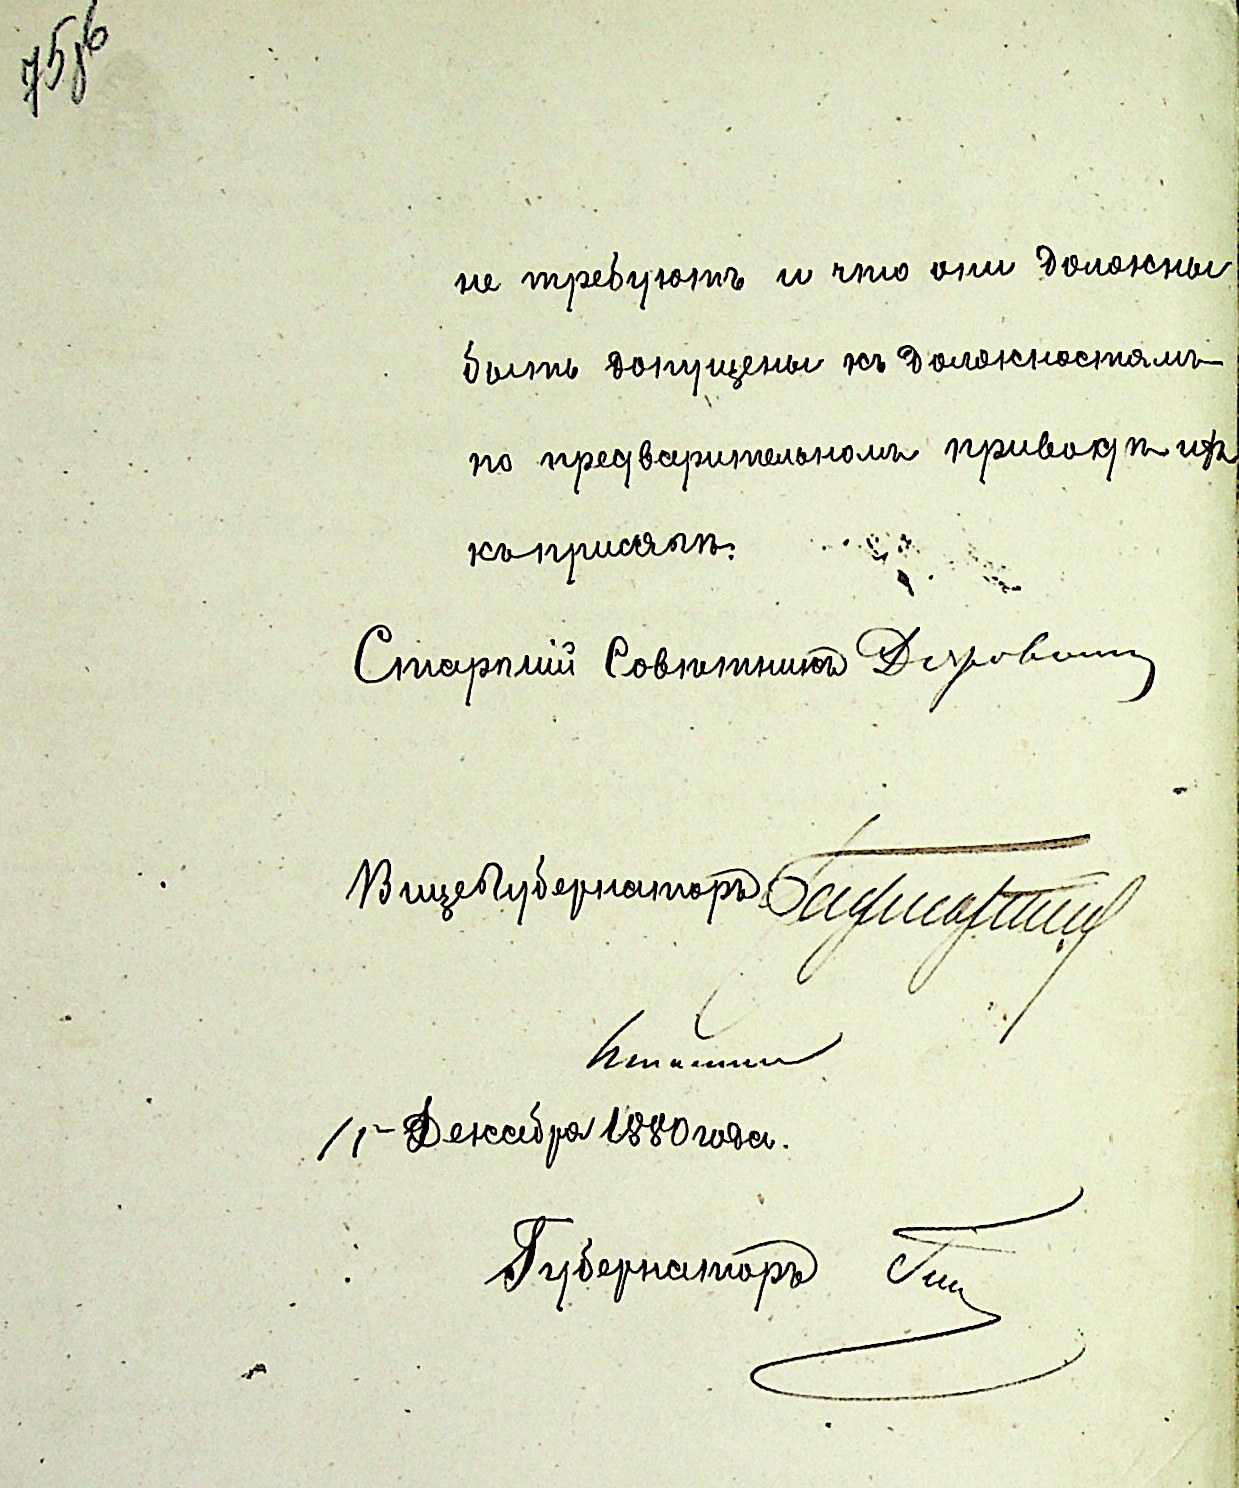 75 об
не требуютъ и что они должны
быть допущены къ должностямъ
по предварительномъ приводѣ ихъ
къ присягѣ.
Старшій Совѣтникъ
Вице Губернаторъ
15 Декабря 1880 года.
Губернаторъ